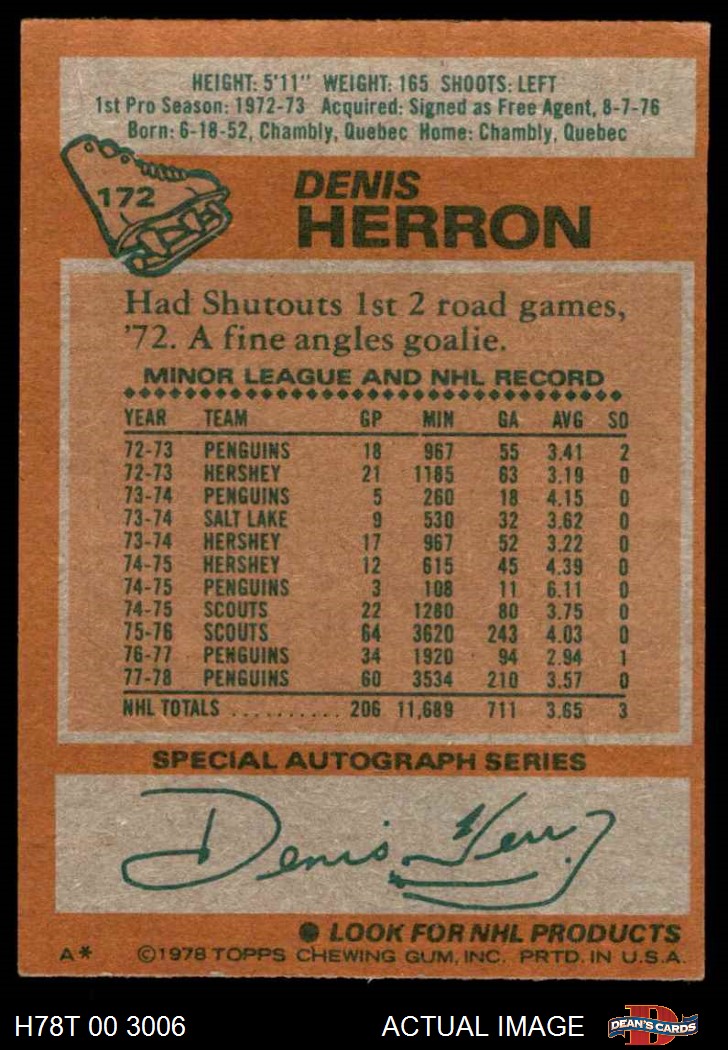 HEIGHT: 5'11" WEIGHT: 165 SHOOTS: LEFT
1st Pro Season: 1972-73 Acquired: Signed as Free Agent, 8-7-76
Born: 6-18-52, Chambly, Quebec Home: Chambly, Quebec
172
DENIS
HERRON
Had Shutouts 1st 2 road games,
'72. A fine angles goalie.
MINOR LEAGUE AND NHL RECORD
YEAR TEAM GP MIN GA AVG SO
72-73 PENGUINS 18 967 55 3.41 2
72-73 HERSHEY 21 1185 63 3.19 0
73-74 PENGUINS 5 260 18 4.15 0
73-74 SALT LAKE 9 530 32 3.62 0
73-74 HERSHEY 17 967 52 3.22 0
74-75 HERSHEY 12 615 45 4.39 0
74-75 PENGUINS 3 108 11 6.11 0
74-75 SCOUTS 22 1280 80 3.75 0
75-76 SCOUTS 64 3620 243 4.03 0
76-77 PENGUINS 34 1920 94 2.94 1
77-78 PENGUINS 60 3534 210 3.57 0
NHL TOTALS .......... 206 11,689 711 3.65 3
SPECIAL AUTOGRAPH SERIES
Denis Herr
● LOOK FOR NHL PRODUCTS
A* ©1978 TOPPS CHEWING GUM, INC. PRTD. IN U.S.A.
H78T 00 3006 ACTUAL IMAGE DEAN'S CARDS